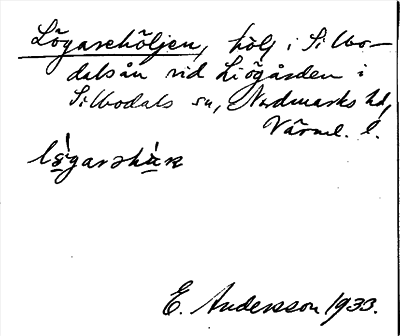 Lögarehöljen, hölj i Silbo-
dalsån vid Liögården i
Silbodals sn, Nordmarks hd,
Värml. l.
E. Andersson 1933.